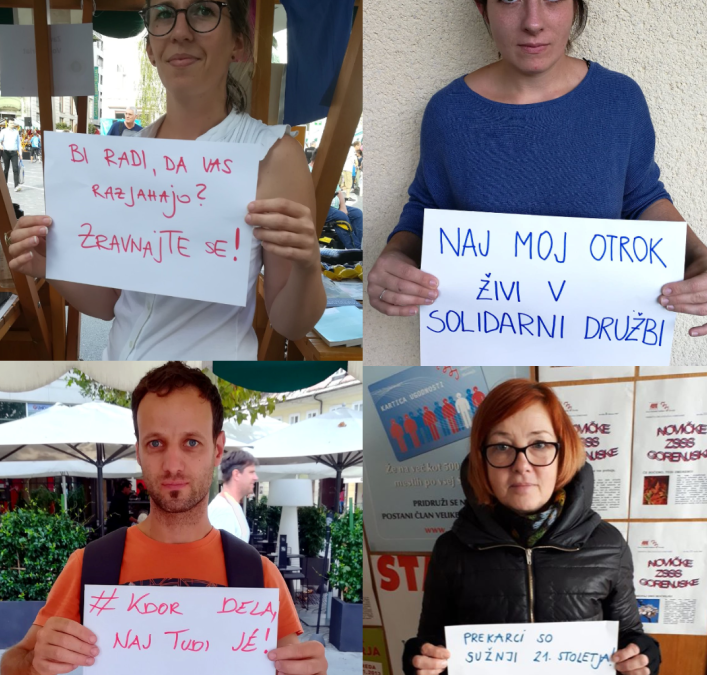 BI RADI, DA VAS
RAZJAHAJO?
ZRAVNAJTE SE!
NAJ MOJ OTROK
ŽIVI V
SOLIDARNI DRUŽBI
# KDOR DELA,
NAJ TUDI JÉ!
KARTICA UGODNOSTI
PRIDRUŽI SE N
POSTANI ČLAN VELIKE
www.
STA
NOVIČKE
ZSSS
GORENJSKE
NOVIČKE
ZSSS
GORENJSKE
NOVIČKE
ZSSS
GORENJSKE
NOVIČKE
ZSSS
GORENJSKE
PREKARCI SO
SUŽNJI 21. STOLETJA!